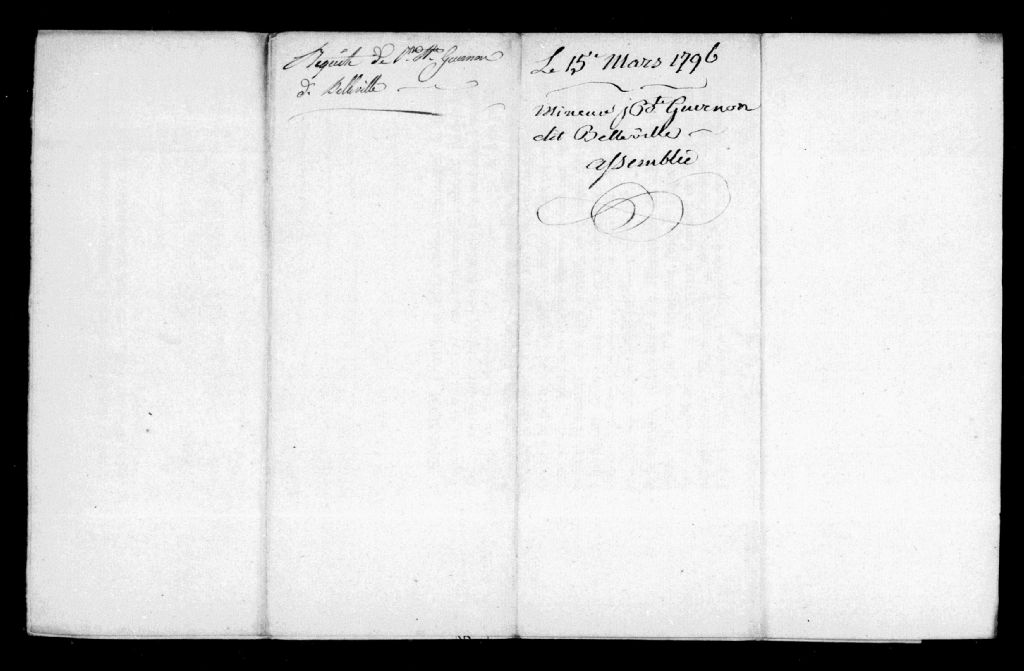 Requête de Guernon
d. Belleville
Le 15e Mars 1796
Mineure j Bte Guernon
dit Belleville
assemblée